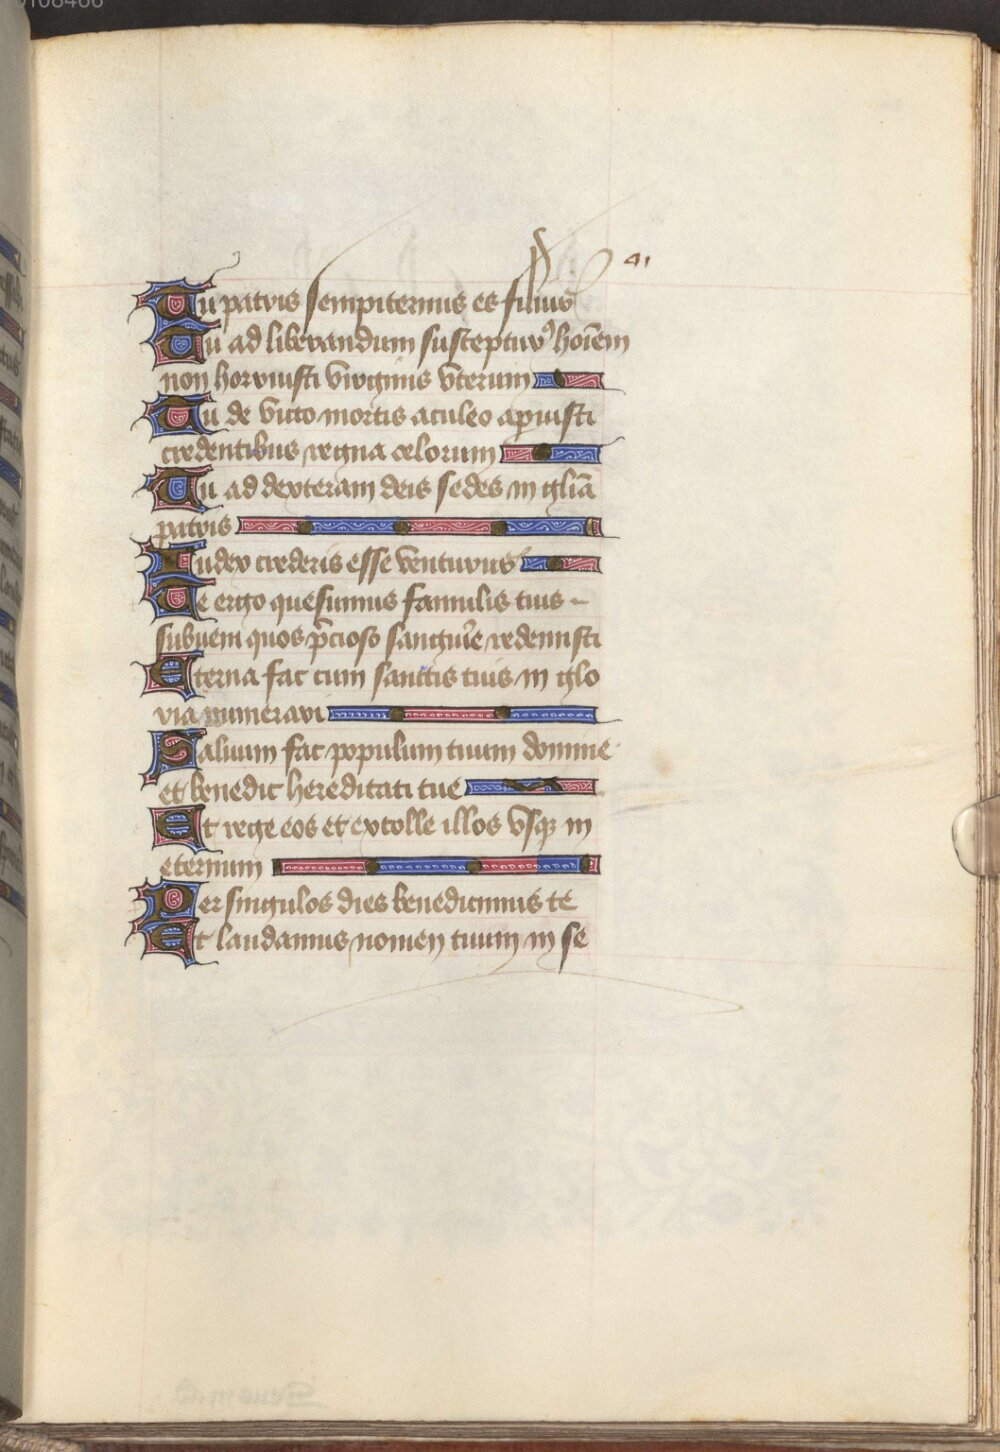 41
Tu patris sempiternus es filius
Tu ad liberandum suscepturꝰ hoīem
non horruisti virginis vterum
Tu de victo mortis aculeo apruisti
credentibus regna celorum
Tu ad dexteram deis sedes in gliā
patris
Iudex crederis esse venturus
Te ergo quesumus famulis tuis
subueni quos p̄cioso sanguīe redemisti
Eterna fac cum sanctis tuis in glo
ria numerari
Saluum fac populum tuum domine
et benedic hereditati tue
Et rege eos et extolle illos vsqꝫ in
eternum
Per singulos dies benedicimus te
Et laudamus nomen tuum in se